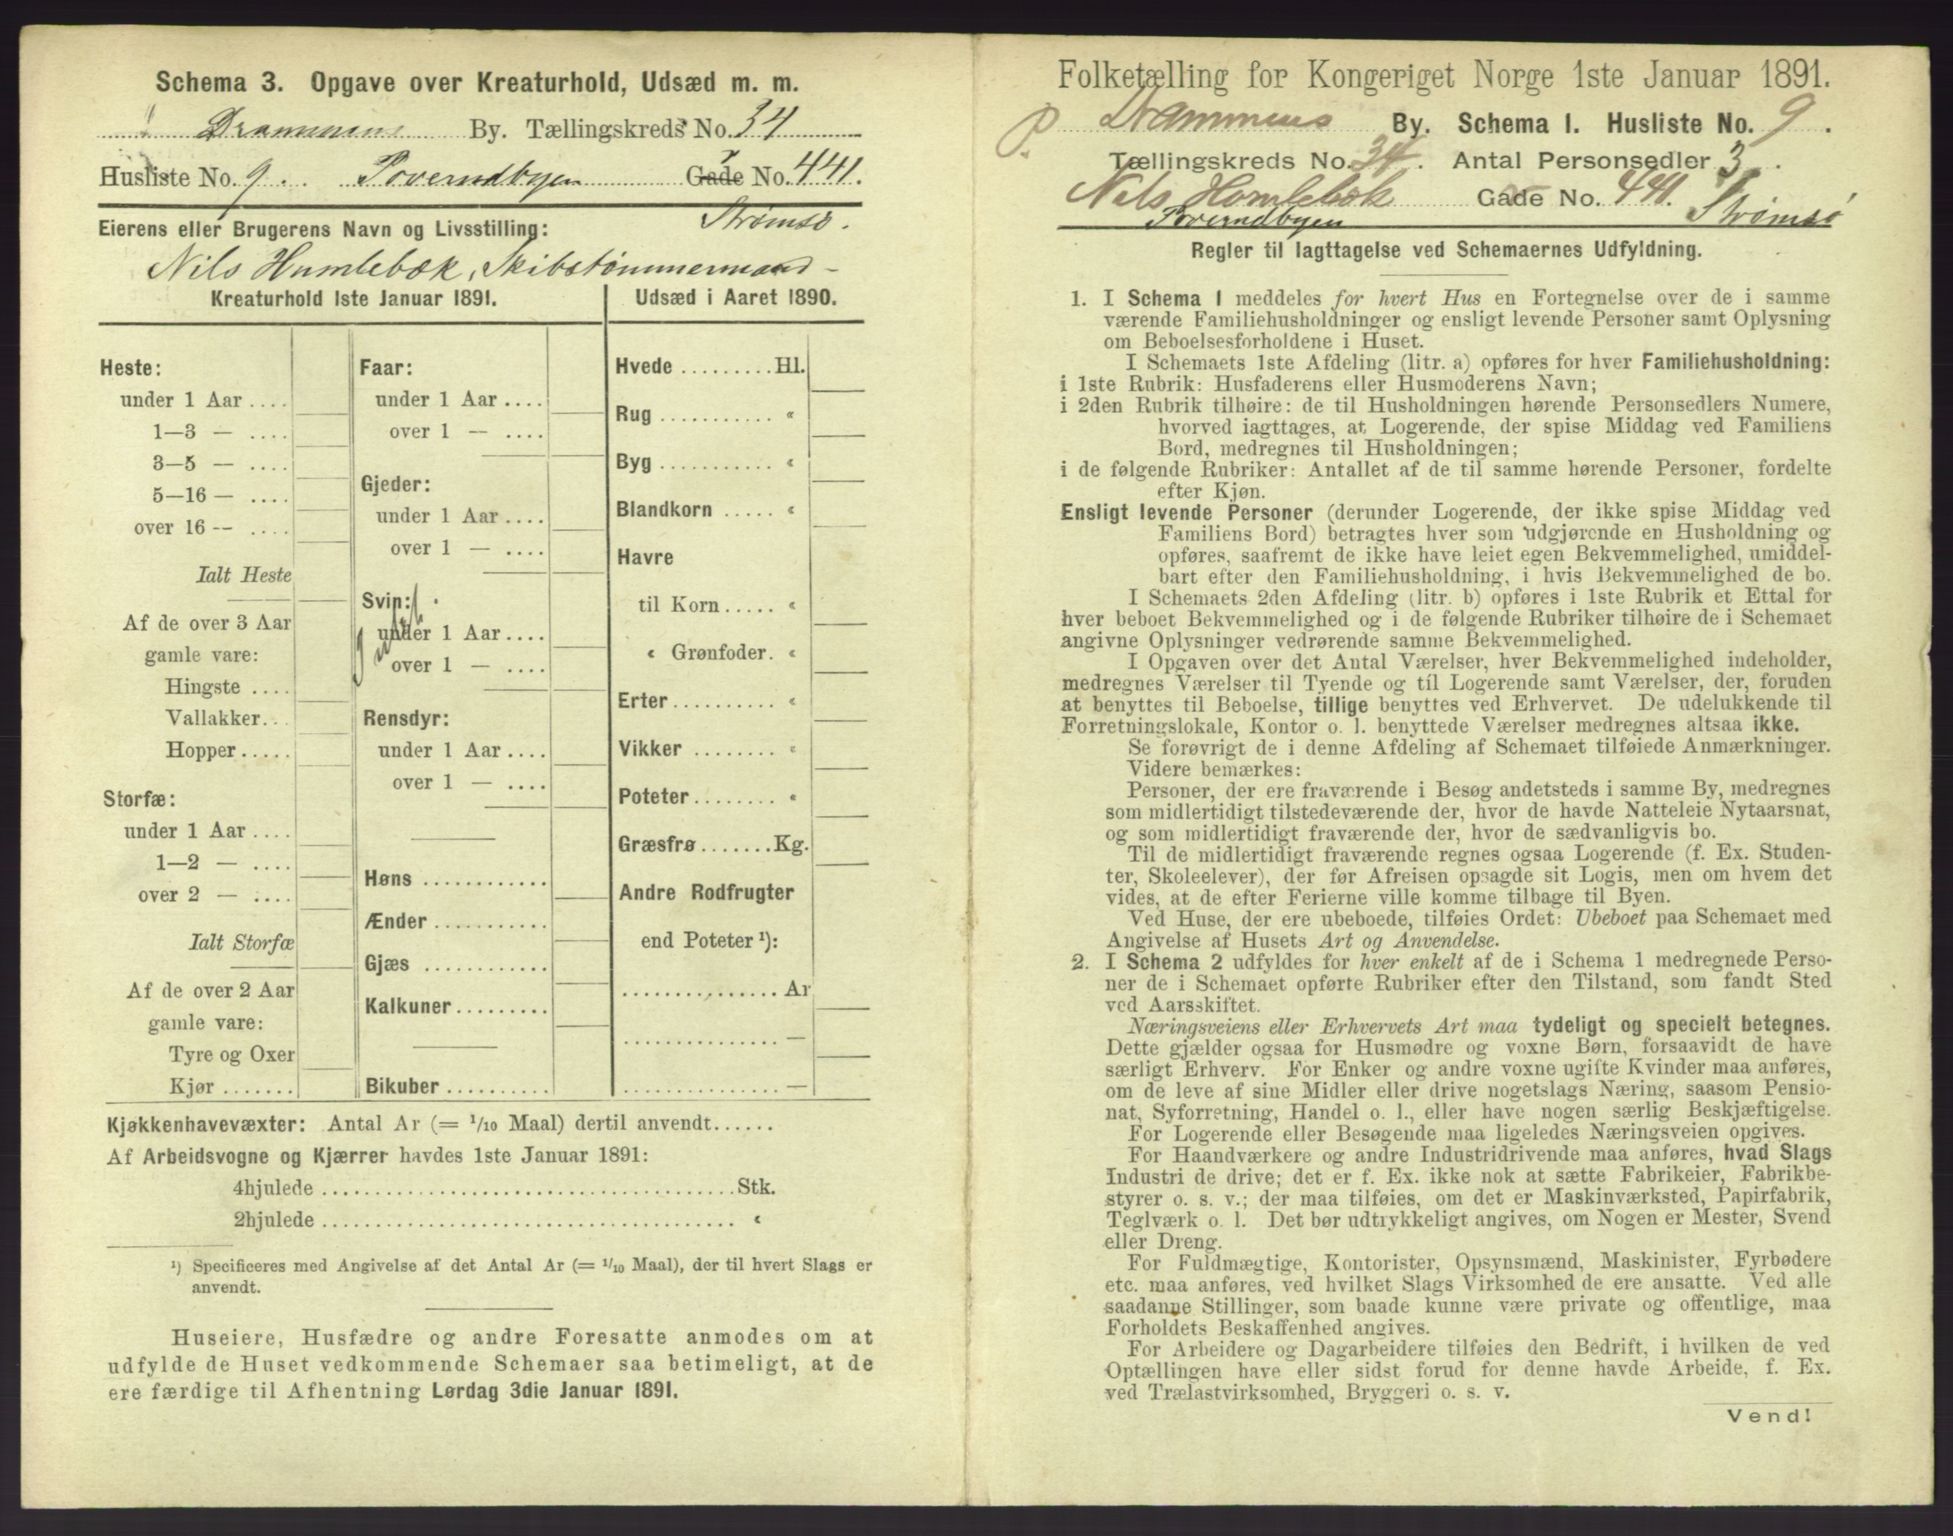 Schema 3. Opgave over Kreaturhold, Udsæd m. m.
Drammens By. Tællingskreds No. 34
Husliste No. 9. Toverudbyen Gade No. 441.
Strømsø.
Eierens eller Brugerens Navn og Livsstilling:
Nils Humlebæk, Skibstømmermand
Kreaturhold 1ste Januar 1891.
Heste:
under 1 Aar ....
1—3 — ....
3—5 — ....
5—16 — ....
over 16 — ....
Ialt Heste
Af de over 3 Aar
gamle vare:
Hingste ....
Vallakker...
Hopper.....
Storfæ:
under 1 Aar ....
1—2 — ....
over 2 — ....
Ialt Storfæ
Af de over 2 Aar
gamle vare:
Tyre og Oxer
Kjør .......
Faar:
under 1 Aar ....
over 1 — ....
Gjeder:
under 1 Aar ....
over 1 — ....
Svin:
under 1 Aar ....
over 1 — ....
Rensdyr:
under 1 Aar ....
over 1 — ....
Høns ............
Ænder ...........
Gjæs ............
Kalkuner.........
Bikuber ..........
Udsæd i Aaret 1890.
Hvede .........Hl.
Rug ........... «
Byg ........... «
Blandkorn ..... «
Havre
til Korn ..... «
« Grønfoder. «
Erter.......... «
Vikker ........ «
Poteter........ «
Græsfrø.......Kg.
Andre Rodfrugter
end Poteter ¹):
................Ar
................—
................—
Kjøkkenhavevæxter: Antal Ar (= 1/10 Maal) dertil anvendt......
Af Arbeidsvogne og Kjærrer havdes 1ste Januar 1891:
4hjulede ........................................Stk.
2hjulede ........................................ «
¹) Specificeres med Angivelse af det Antal Ar (= 1/10 Maal), der til hvert Slags er
anvendt.
Huseiere, Husfædre og andre Foresatte anmodes om at
udfylde de Huset vedkommende Schemaer saa betimeligt, at de
ere færdige til Afhentning Lørdag 3die Januar 1891.
Folketælling for Kongeriget Norge 1ste Januar 1891.
P. Drammens By. Schema 1. Husliste No. 9.
Tællingskreds No. 34. Antal Personsedler 3.
Nils Homlebæk Gade No. 441.
Toverudbyen Strømsø
Regler til Iagttagelse ved Schemaernes Udfyldning.
1. I Schema 1 meddeles for hvert Hus en Fortegnelse over de i samme
værende Familiehusholdninger og ensligt levende Personer samt Oplysning
om Beboelsesforholdene i Huset.
I Schemaets 1ste Afdeling (litr. a) opføres for hver Familiehusholdning:
i 1ste Rubrik: Husfaderens eller Husmoderens Navn;
i 2den Rubrik tilhøire: de til Husholdningen hørende Personsedlers Numere,
hvorved iagttages, at Logerende, der spise Middag ved Familiens
Bord, medregnes til Husholdningen;
i de følgende Rubriker: Antallet af de til samme hørende Personer, fordelte
efter Kjøn.
Ensligt levende Personer (derunder Logerende, der ikke spise Middag ved
Familiens Bord) betragtes hver som udgjørende en Husholdning og
opføres, saafremt de ikke have leiet egen Bekvemmelighed, umiddel-
bart efter den Familiehusholdning, i hvis Bekvemmelighed de bo.
I Schemaets 2den Afdeling (litr. b) opføres i 1ste Rubrik et Ettal for
hver beboet Bekvemmelighed og i de følgende Rubriker tilhøire de i Schemaet
angivne Oplysninger vedrørende samme Bekvemmelighed.
I Opgaven over det Antal Værelser, hver Bekvemmelighed indeholder,
medregnes Værelser til Tyende og til Logerende samt Værelser, der, foruden
at benyttes til Beboelse, tillige benyttes ved Erhvervet. De udelukkende til
Forretningslokale, Kontor o. l. benyttede Værelser medregnes altsaa ikke.
Se forøvrigt de i denne Afdeling af Schemaet tilføiede Anmærkninger.
Videre bemærkes:
Personer, der ere fraværende i Besøg andetsteds i samme By, medregnes
som midlertidigt tilstedeværende der, hvor de havde Natteleie Nytaarsnat,
og som midlertidigt fraværende der, hvor de sædvanligvis bo.
Til de midlertidigt fraværende regnes ogsaa Logerende (f. Ex. Studen-
ter, Skoleelever), der før Afreisen opsagde sit Logis, men om hvem det
vides, at de efter Ferierne ville komme tilbage til Byen.
Ved Huse, der ere ubeboede, tilføies Ordet: Ubeboet paa Schemaet med
Angivelse af Husets Art og Anvendelse.
2. I Schema 2 udfyldes for hver enkelt af de i Schema 1 medregnede Perso-
ner de i Schemaet opførte Rubriker efter den Tilstand, som fandt Sted
ved Aarsskiftet.
Næringsveiens eller Erhvervets Art maa tydeligt og specielt betegnes.
Dette gjælder ogsaa for Husmødre og voxne Børn, forsaavidt de have
særligt Erhverv. For Enker og andre voxne ugifte Kvinder maa anføres,
om de leve af sine Midler eller drive nogetslags Næring, saasom Pensio-
nat, Syforretning, Handel o. l., eller have nogen særlig Beskjæftigelse.
For Logerende eller Besøgende maa ligeledes Næringsveien opgives.
For Haandværkere og andre Industridrivende maa anføres, hvad Slags
Industri de drive; det er f. Ex. ikke nok at sætte Fabrikeier, Fabrikbe-
styrer o. s. v.; der maa tilføies, om det er Maskinværksted, Papirfabrik,
Teglværk o. l. Det bør udtrykkeligt angives, om Nogen er Mester, Svend
eller Dreng.
For Fuldmægtige, Kontorister, Opsynsmænd, Maskinister, Fyrbødere
etc. maa anføres, ved hvilket Slags Virksomhed de ere ansatte. Ved alle
saadanne Stillinger, som baade kunne være private og offentlige, maa
Forholdets Beskaffenhed angives.
For Arbeidere og Dagarbeidere tilføies den Bedrift, i hvilken de ved
Optællingen have eller sidst forud for denne havde Arbeide, f. Ex.
ved Trælastvirksomhed, Bryggeri o. s. v.
Vend!